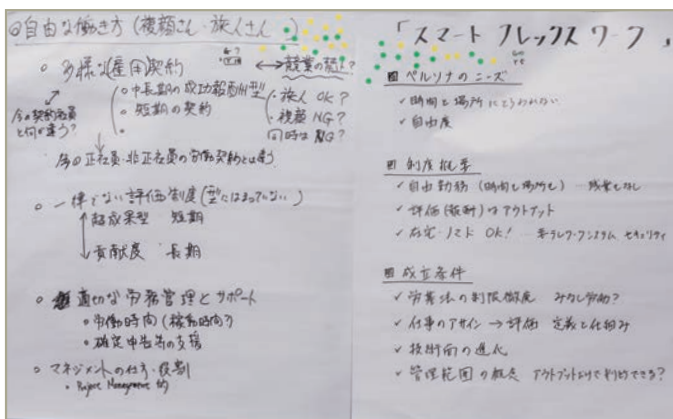 ◎自由な働き方(複顔さん・旅人さん)
○ 多様な(雇用)契約 ⟷ 競業の禁止?
中長期の成功報酬型
短期の契約
・旅人 OK?
・複顔 NG?
同時は NG?
今の契約社員
と何が違う?
今の正社員・非正社員の労働契約とは違う
○ 一律でない評価制度(型にはまっていない)
超成果型 短期
貢献度 長期
○ 適切な労務管理とサポート
○ 労働時間(稼働時間?)
○ 確定申告等の支援
○ マネジメントの仕方・役割
• Project Management 的
「スマート フレックス ワーク」
ペルソナのニーズ
✓ 時間と場所にとらわれない
✓ 自由度
制度概要
✓ 自由勤務(時間も場所も) ─ 残業もなし
✓ 評価(報酬)はアウトプット
✓ 在宅・ノマド OK! ─ テレワークシステム セキュリティ
成立条件
✓ 労基法の制限撤廃 みなし労働?
✓ 仕事のアサイン → 評価 定義と仕組み
✓ 技術面の進化
✓ 管理範囲の
アウトプットだけで判断できる?